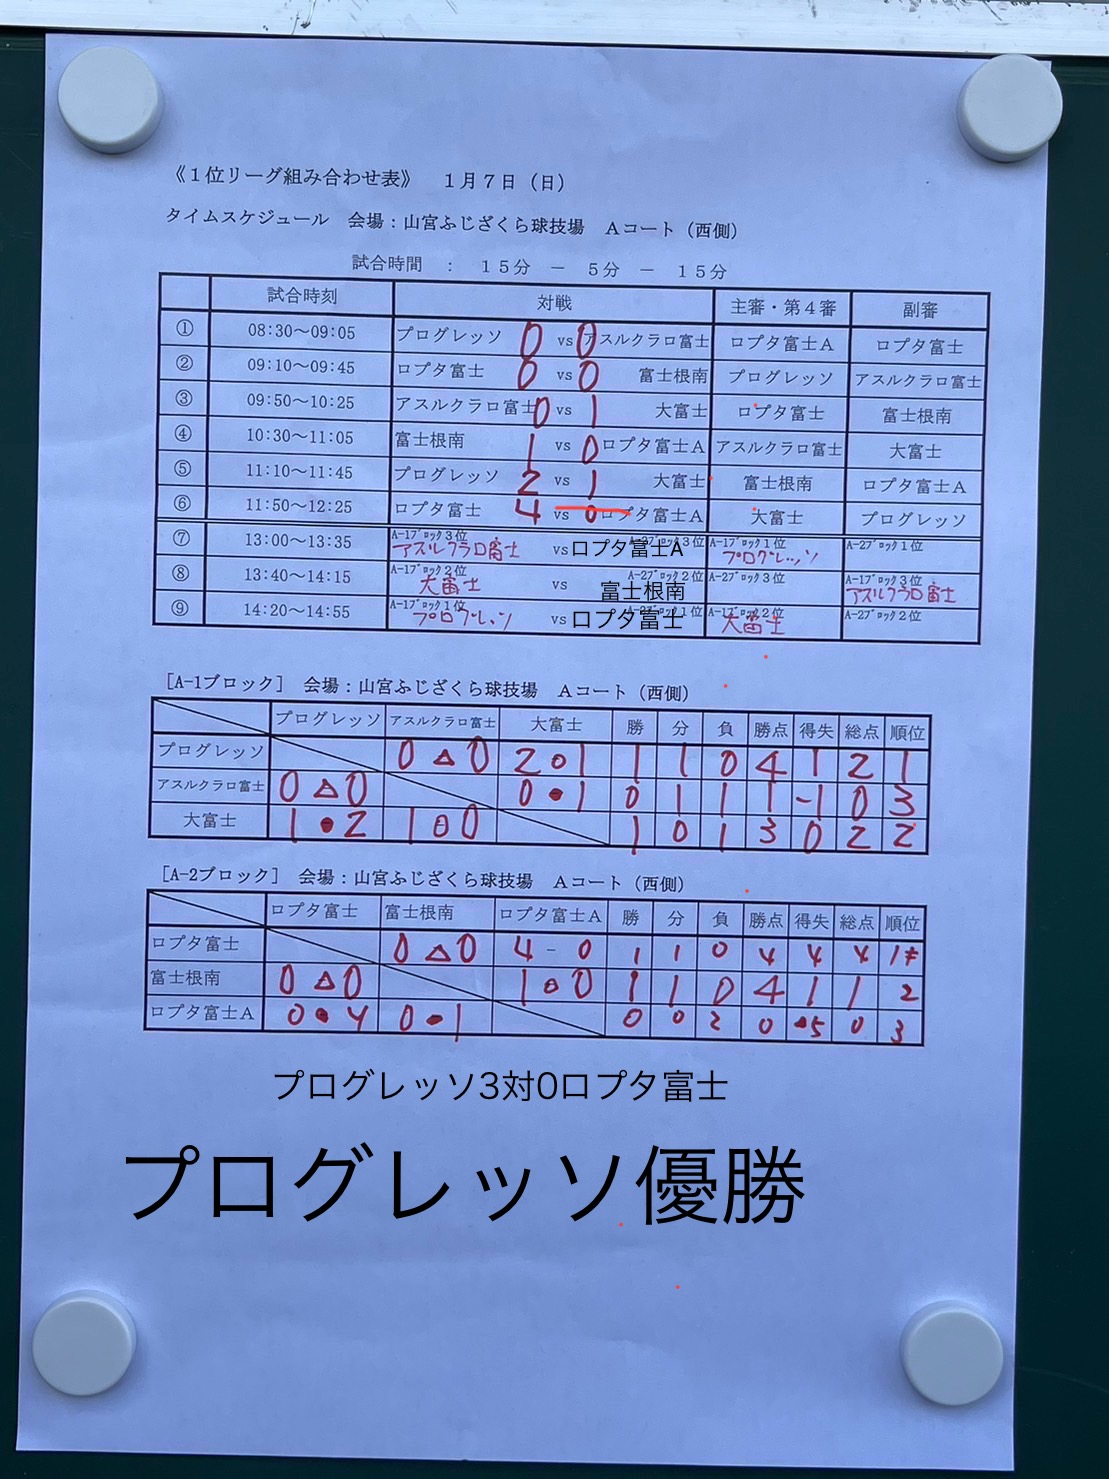 《１位リーグ組み合わせ表》　１月７日（日）
タイムスケジュール　会場：山宮ふじざくら球技場　Ａコート（西側）
試合時間　：　１５分　－　５分　－　１５分
試合時刻　対戦　主審・第４審　副審
① 08:30～09:05 プログレッソ 0 vs 0 アスルクラロ富士 ロプタ富士Ａ ロプタ富士
② 09:10～09:45 ロプタ富士 0 vs 0 富士根南 プログレッソ アスルクラロ富士
③ 09:50～10:25 アスルクラロ富士 0 vs 1 大富士 ロプタ富士 富士根南
④ 10:30～11:05 富士根南 1 vs 0 ロプタ富士Ａ アスルクラロ富士 大富士
⑤ 11:10～11:45 プログレッソ 2 vs 1 大富士 富士根南 ロプタ富士Ａ
⑥ 11:50～12:25 ロプタ富士 4 vs 0 ロプタ富士Ａ 大富士 プログレッソ
⑦ 13:00～13:35 A-1ﾌﾞﾛｯｸ３位 アスルクラロ富士 vs ロプタ富士A A-2ﾌﾞﾛｯｸ３位 A-1ﾌﾞﾛｯｸ１位 プログレッソ A-2ﾌﾞﾛｯｸ１位
⑧ 13:40～14:15 A-1ﾌﾞﾛｯｸ２位 大富士 vs 富士根南 A-2ﾌﾞﾛｯｸ２位 A-2ﾌﾞﾛｯｸ３位 A-1ﾌﾞﾛｯｸ３位 アスルクラロ富士
⑨ 14:20～14:55 A-1ﾌﾞﾛｯｸ１位 プログレッソ vs ロプタ富士 A-2ﾌﾞﾛｯｸ１位 A-1ﾌﾞﾛｯｸ２位 大富士 A-2ﾌﾞﾛｯｸ２位
［A-1ブロック］　会場：山宮ふじざくら球技場　Ａコート（西側）
プログレッソ アスルクラロ富士 大富士 勝 分 負 勝点 得失 総点 順位
プログレッソ 0 △ 0 2 ○ 1 1 1 0 4 1 2 1
アスルクラロ富士 0 △ 0 0 ● 1 0 1 1 1 -1 0 3
大富士 1 ● 2 1 ○ 0 1 0 1 3 0 2 2
［A-2ブロック］　会場：山宮ふじざくら球技場　Ａコート（西側）
ロプタ富士 富士根南 ロプタ富士Ａ 勝 分 負 勝点 得失 総点 順位
ロプタ富士 0 △ 0 4 - 0 1 1 0 4 4 4 1
富士根南 0 △ 0 1 ○ 0 1 1 0 4 1 1 2
ロプタ富士Ａ 0 ● 4 0 ● 1 0 0 2 0 -5 0 3
プログレッソ3対0ロプタ富士
プログレッソ優勝